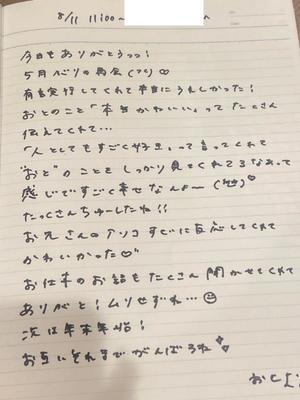 8/11 11:00〜
今日もありがとうっっ!
5月ぶりの再会(??)♡
有言実行してくれて本当にうれしかった!
おとのこと「本当かわいい」ってたくさん
伝えてくれて…
「人としてもすごく好き」って言ってくれて
"おと"のことをしっかり見てくれてるなあって
感じですごく幸せなんよ〜(笑)♡
たっくさんちゅーしたね!!
お兄さんのアソコすぐに反応してくれて
かわいかった♡
お仕事のお話もたくさん聞かせてくれて
ありがと!ムリせずね…☺
次は年末年始!
お互いそれまでがんばろね
おと